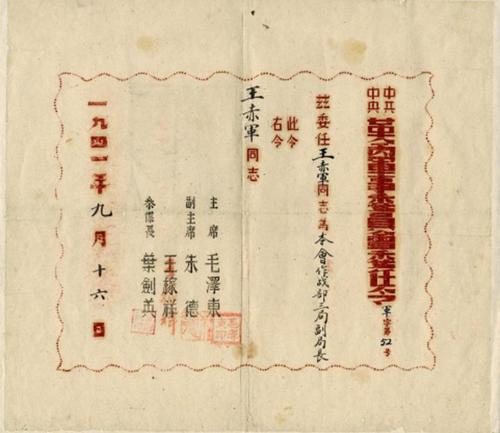 中共中央革命軍事委員會委任令
軍字第52号
茲委任王赤軍同志為本會作战部三局副局長
此令
右令
王赤軍同志
主席 毛澤東
副主席 朱德
王稼祥
參謀長 葉劍英
一九四一年九月十六日